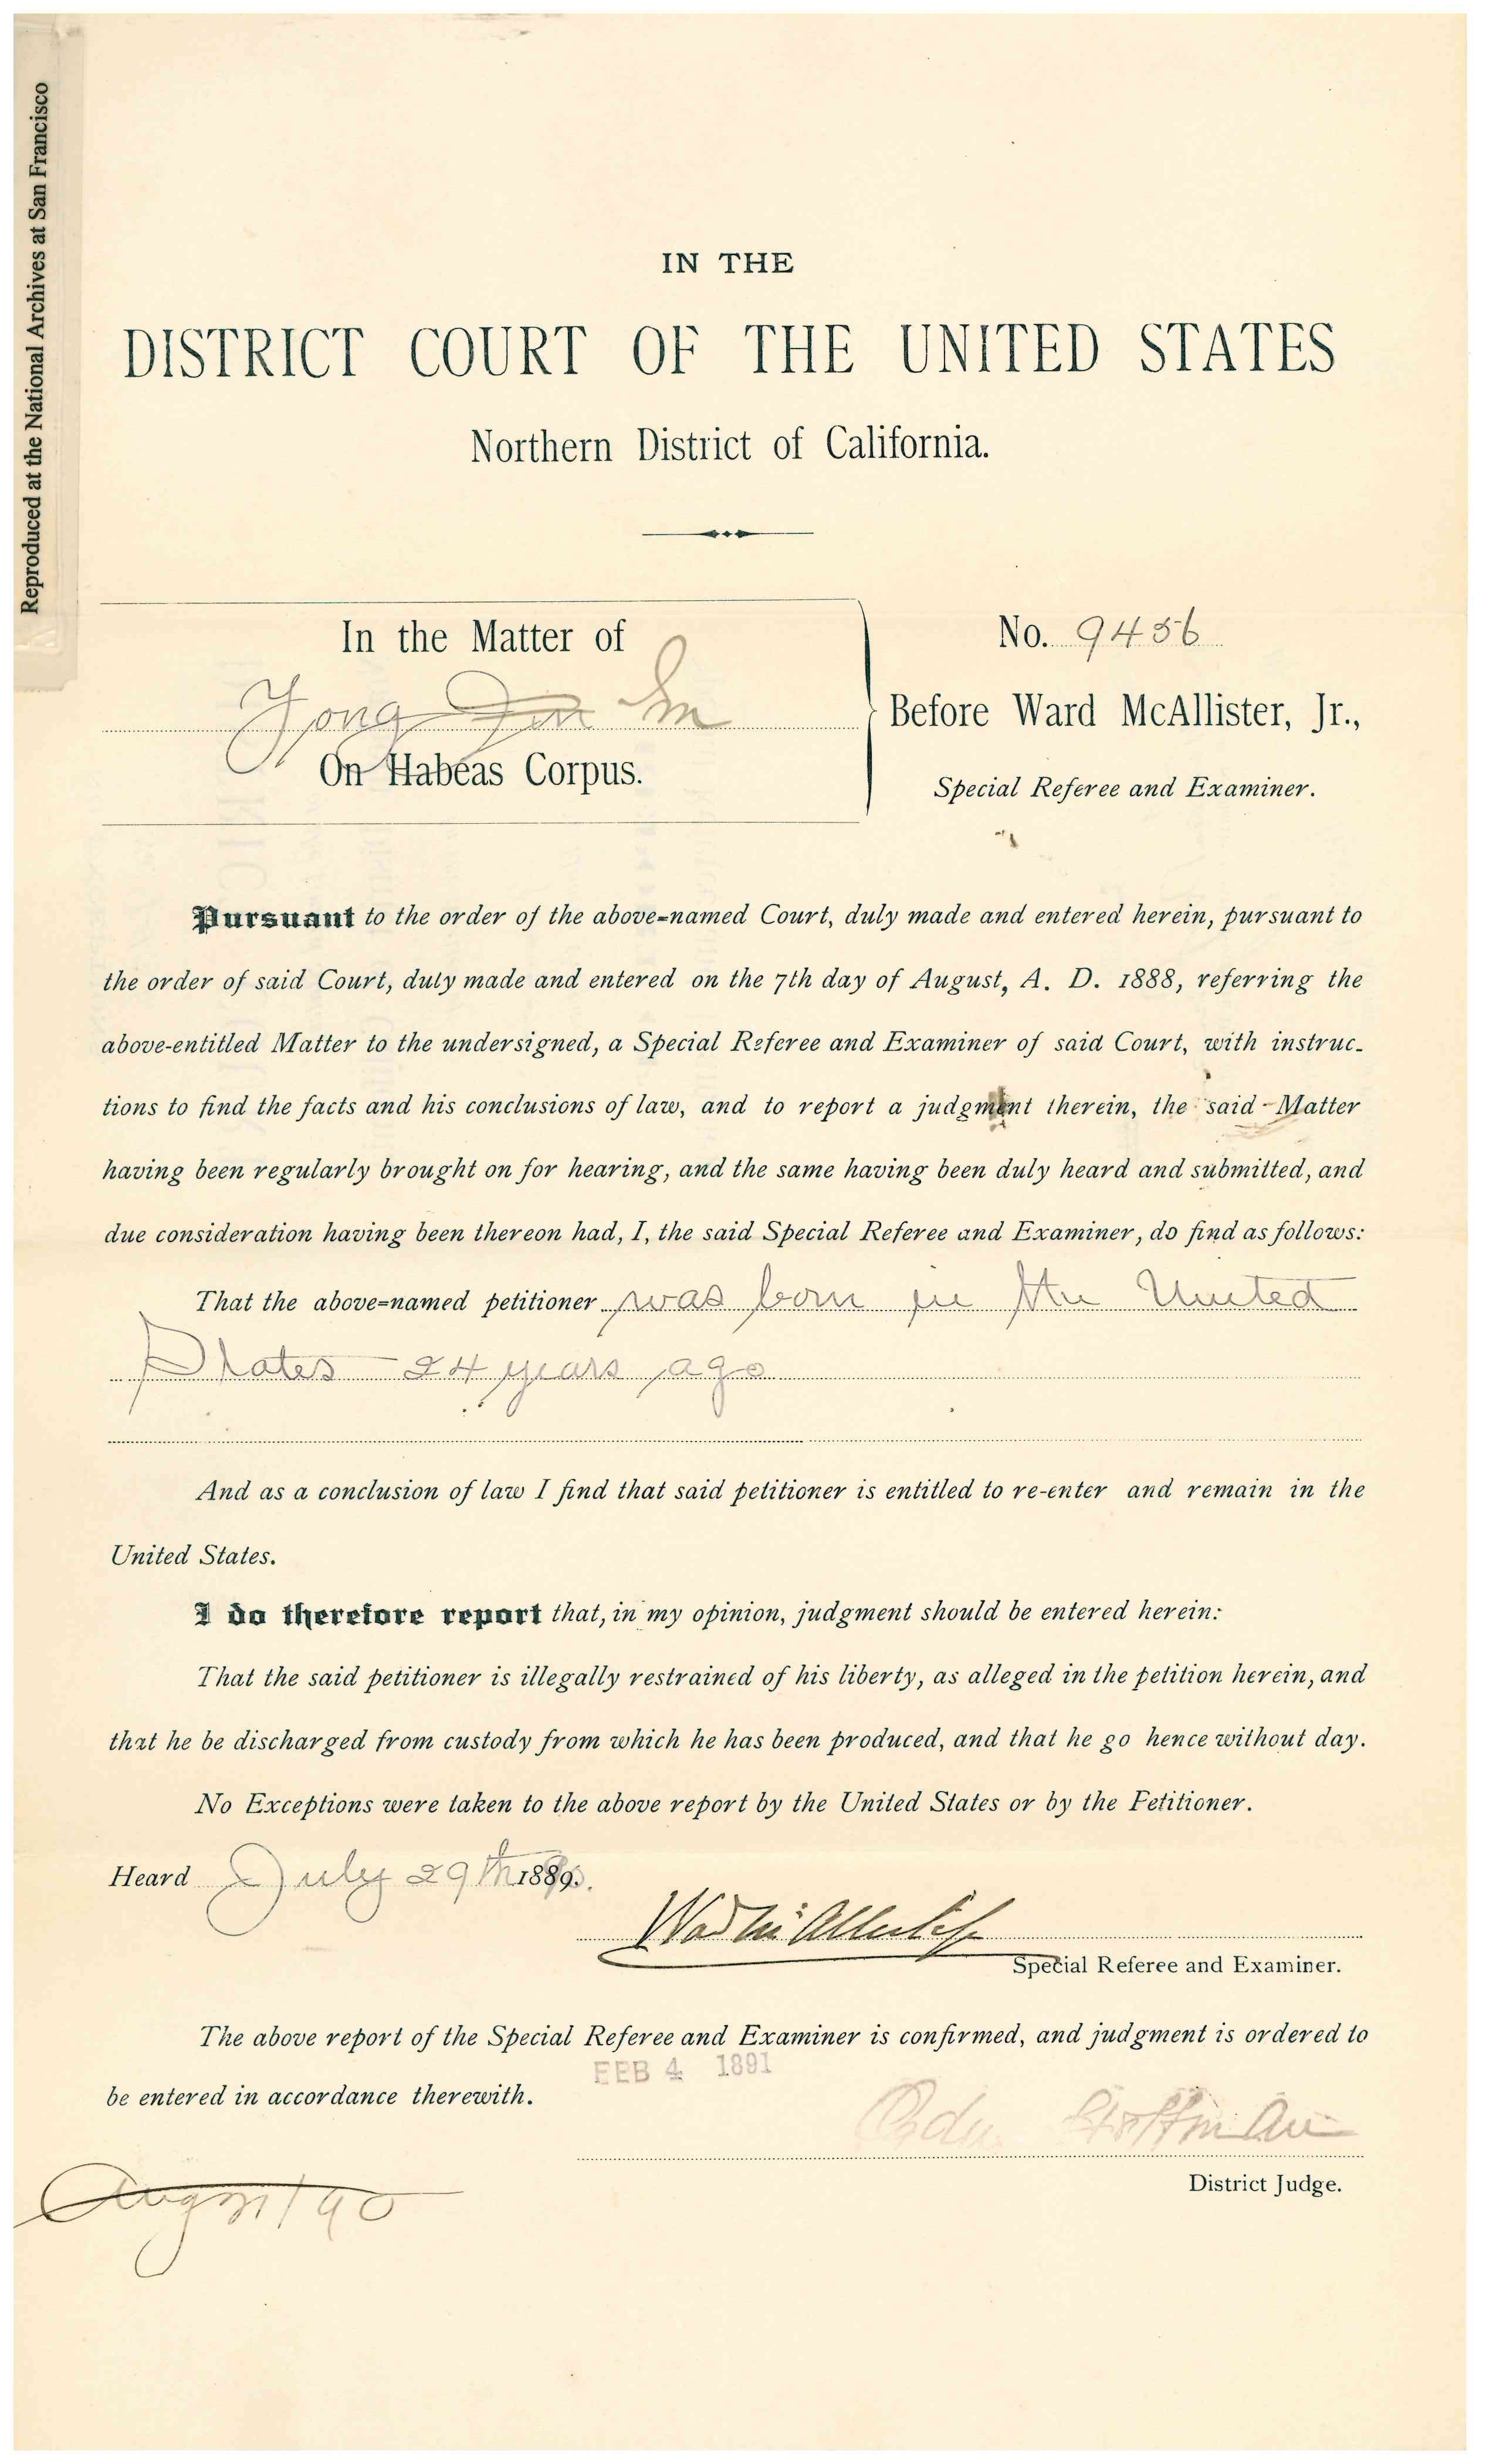 Reproduced at the National Archives at San Francisco
IN THE
DISTRICT COURT OF THE UNITED STATES
Northern District of California.
In the Matter of
No. 9456
Before Ward McAllister, Jr.,
On Habeas Corpus.
Special Referee and Examiner.
Pursuant to the order of the above-named Court, duly made and entered herein, pursuant to
the order of said Court, duly made and entered on the 7th day of August, A. D. 1888, referring the
above-entitled Matter to the undersigned, a Special Referee and Examiner of said Court, with instruc-
tions to find the facts and his conclusions of law, and to report a judgment therein, the said Matter
having been regularly brought on for hearing, and the same having been duly heard and submitted, and
due consideration having been thereon had, I, the said Special Referee and Examiner, do find as follows:
That the above-named petitioner was born in the United
States 24 years ago
And as a conclusion of law I find that said petitioner is entitled to re-enter and remain in the
United States.
I do therefore report that, in my opinion, judgment should be entered herein:
That the said petitioner is illegally restrained of his liberty, as alleged in the petition herein, and
that he be discharged from custody from which he has been produced, and that he go hence without day.
No Exceptions were taken to the above report by the United States or by the Petitioner.
Heard July 29th 1889.
Special Referee and Examiner.
The above report of the Special Referee and Examiner is confirmed, and judgment is ordered to
FEB 4 1891
be entered in accordance therewith.
Hoffman
District Judge.